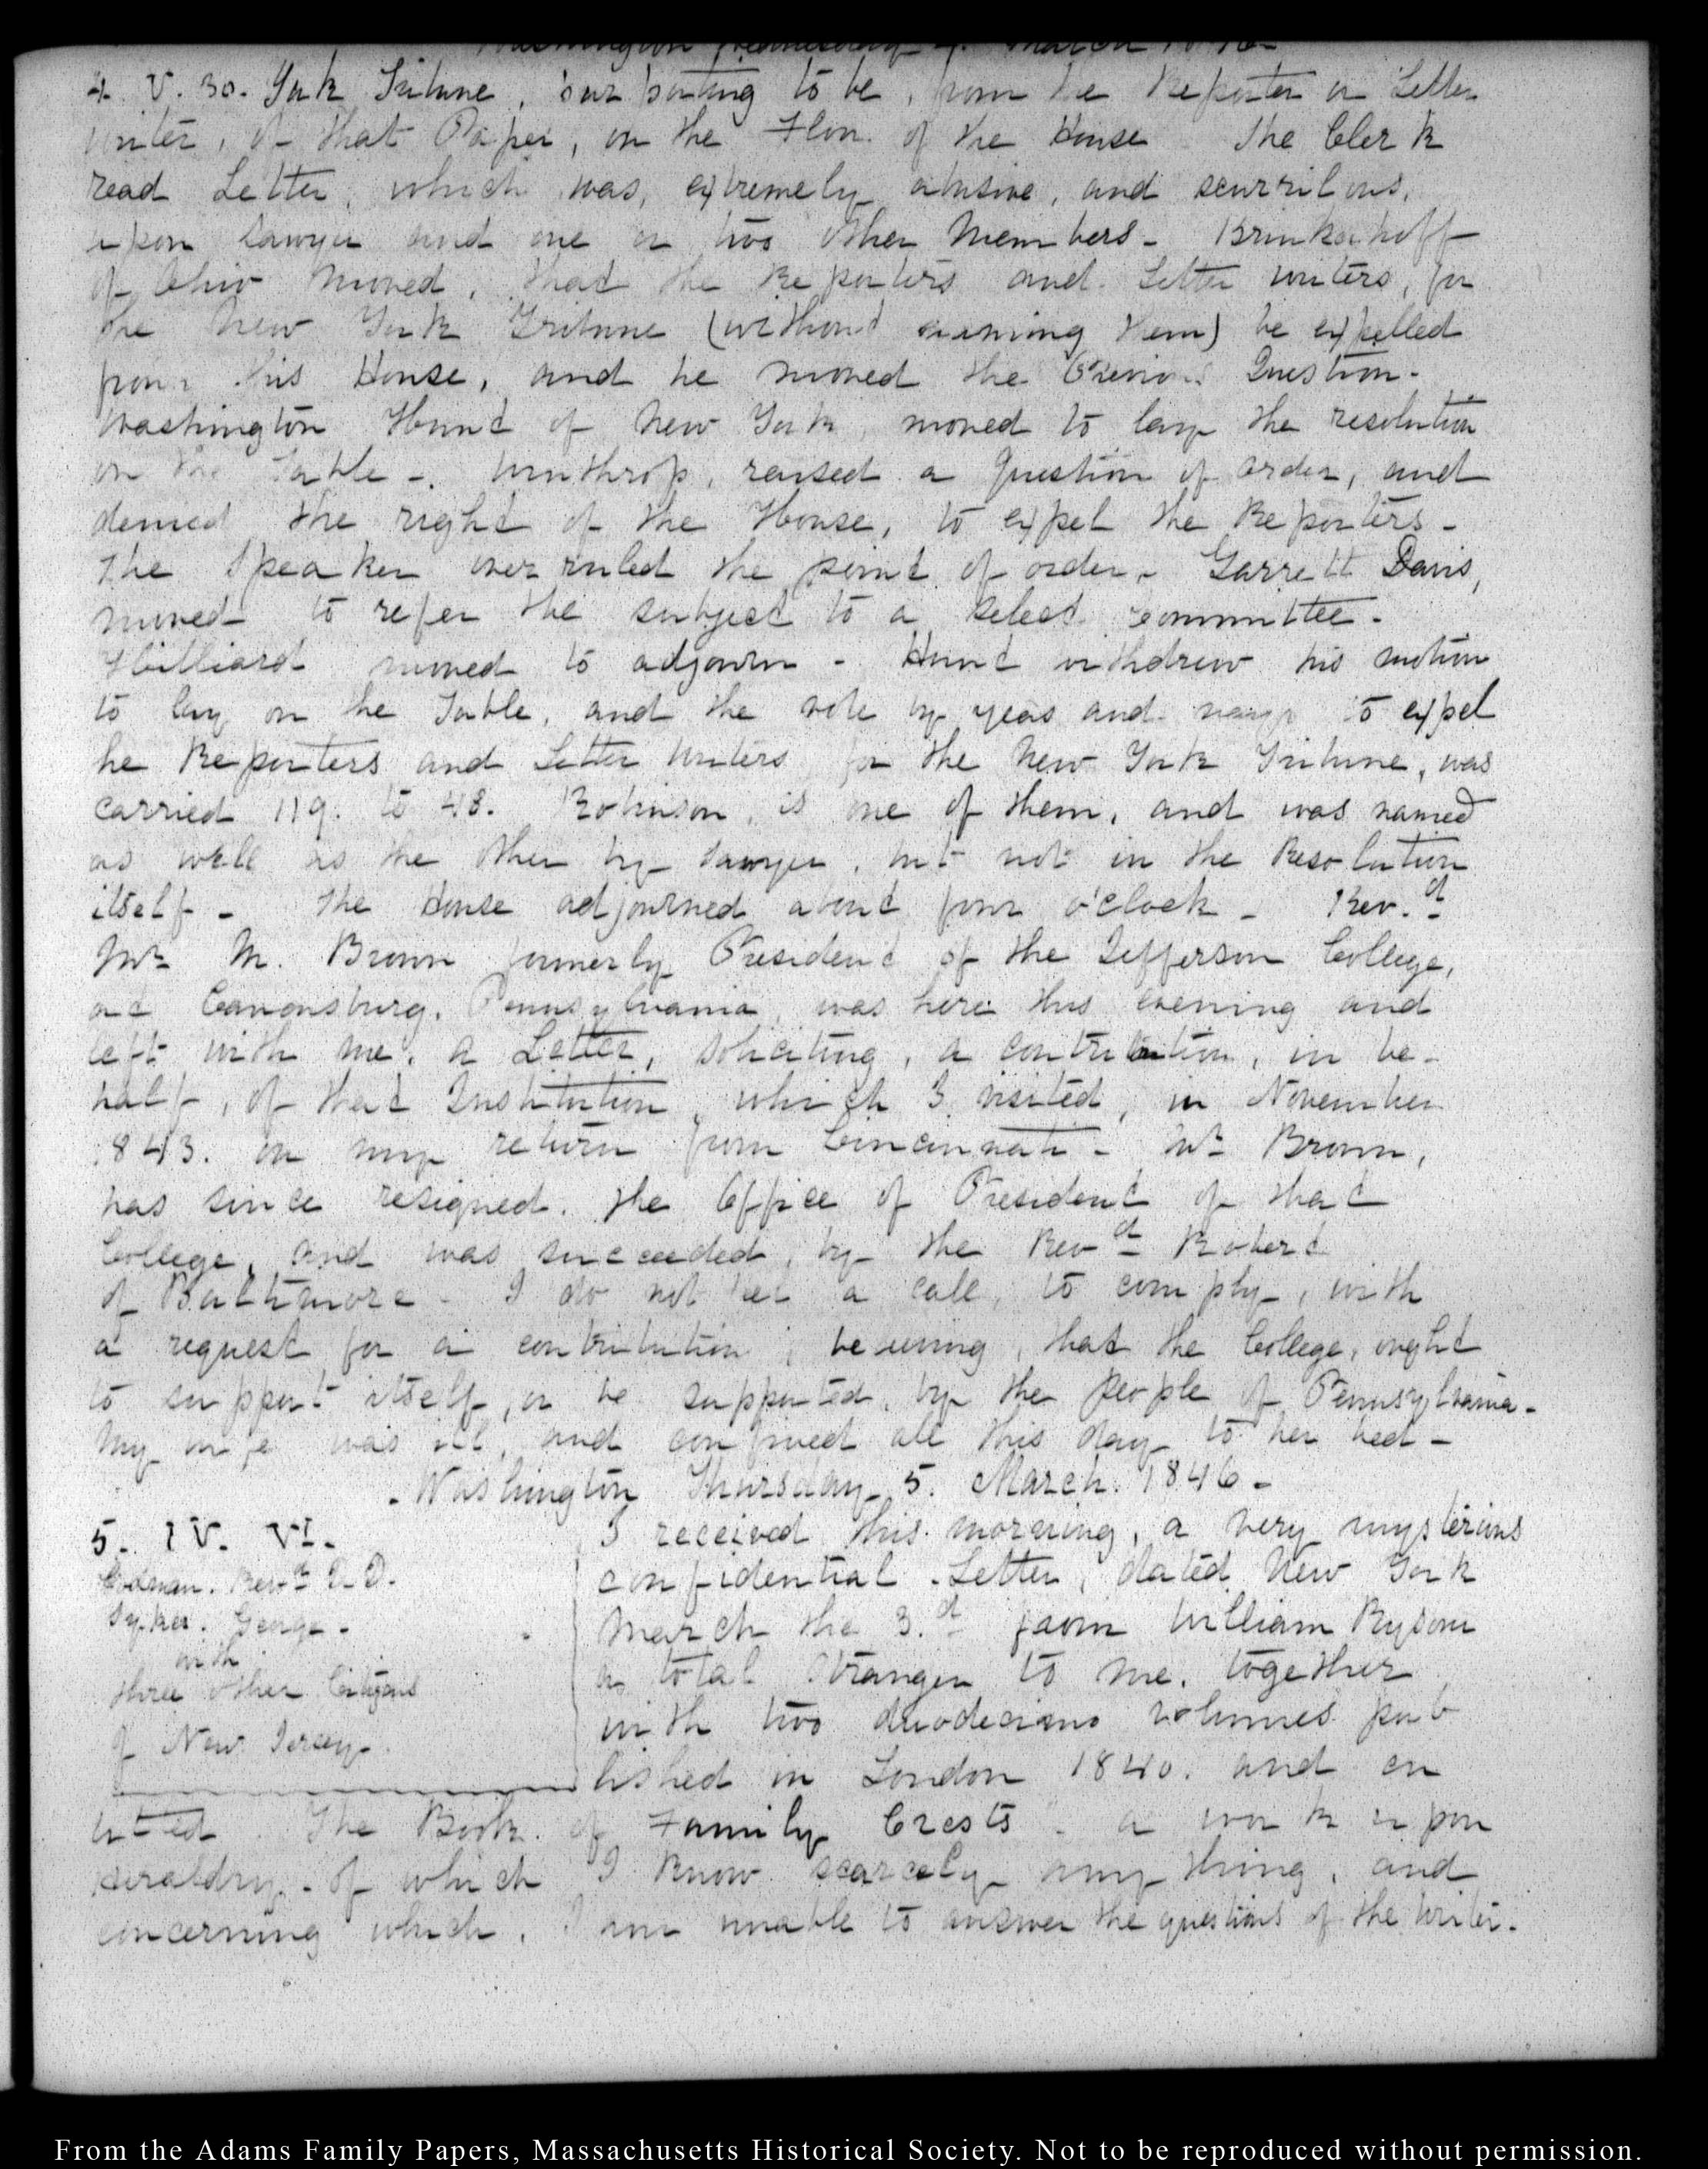 Washington Wednesday 4. March 1846-
4. V. 30. York Tribune, purporting to be, from the Reporter or Letter
writer, of that Paper, on the Floor of the House The Clerk
read Letter, which was, extremely abusive, and scurrilous,
upon Sawyer and one or two other Members- Brinkerhoff
of Ohio moved, that the Reporters and Letter writers, for
the New York Tribune (without naming them) be expelled
from this House, and he moved the Previous Question-
Washington Hunt of New York, moved to lay the resolution
on the Table-. Winthrop, raised a question of order, and
denied the right of the House, to expel the Reporters-
The Speaker over ruled the point of order- Garrett Davis,
moved to refer the subject to a select committee-
Hilliard moved to adjourn- Hunt withdrew his motion
to lay on the Table, and the vote by yeas and nays to expel
the Reporters and Letter writers for the New York Tribune, was
carried 119. to 48. Robinson, is one of them, and was named
as well as the other by Sawyer, but not in the Resolution
itself- The House adjourned about four o'clock- Rev.d
Mr. M. Brown formerly President of the Jefferson College,
at Canonsburg, Pennsylvania, was here this evening and
left with me, a Letter, soliciting, a contribution, in be-
half, of that Institution, which I visited, in November
1843. on my return from Cincinnati- Mr. Brown,
has since resigned, the Office of President of that
College, and was succeeded, by the Revd Robert
of Baltimore- I do not feel a call, to comply, with
a request for a contribution, believing, that the College, ought
to support itself, or be supported, by the people of Pennsylvania-
My wife was ill, and confined all this day to her bed-
-Washington Thursday 5. March. 1846-
5. IV. VI.
Codman. Revd D.D.
Sykes. George-
with
three other Citizens
of New Jersey-
I received this morning, a very mysterious
confidential Letter, dated New York
March the 3.d from William Rysom
a total stranger to me, together
with two duodecimo volumes pub
lished in London 1840. and en
titled The Book of Family Crests- a work upon
Heraldry- of which I know scarcely any thing, and
concerning which, I am unable to answer the questions of the writer-
From the Adams Family Papers, Massachusetts Historical Society. Not to be reproduced without permission.